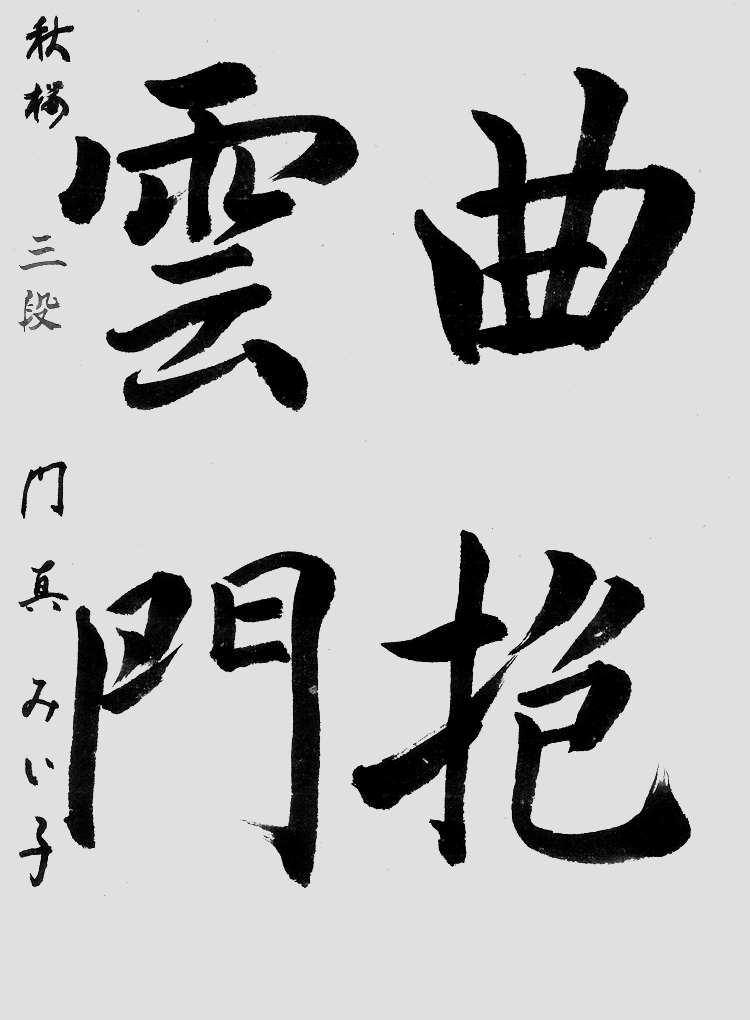 曲抱
雲門
秋桜 三段 門真みい子